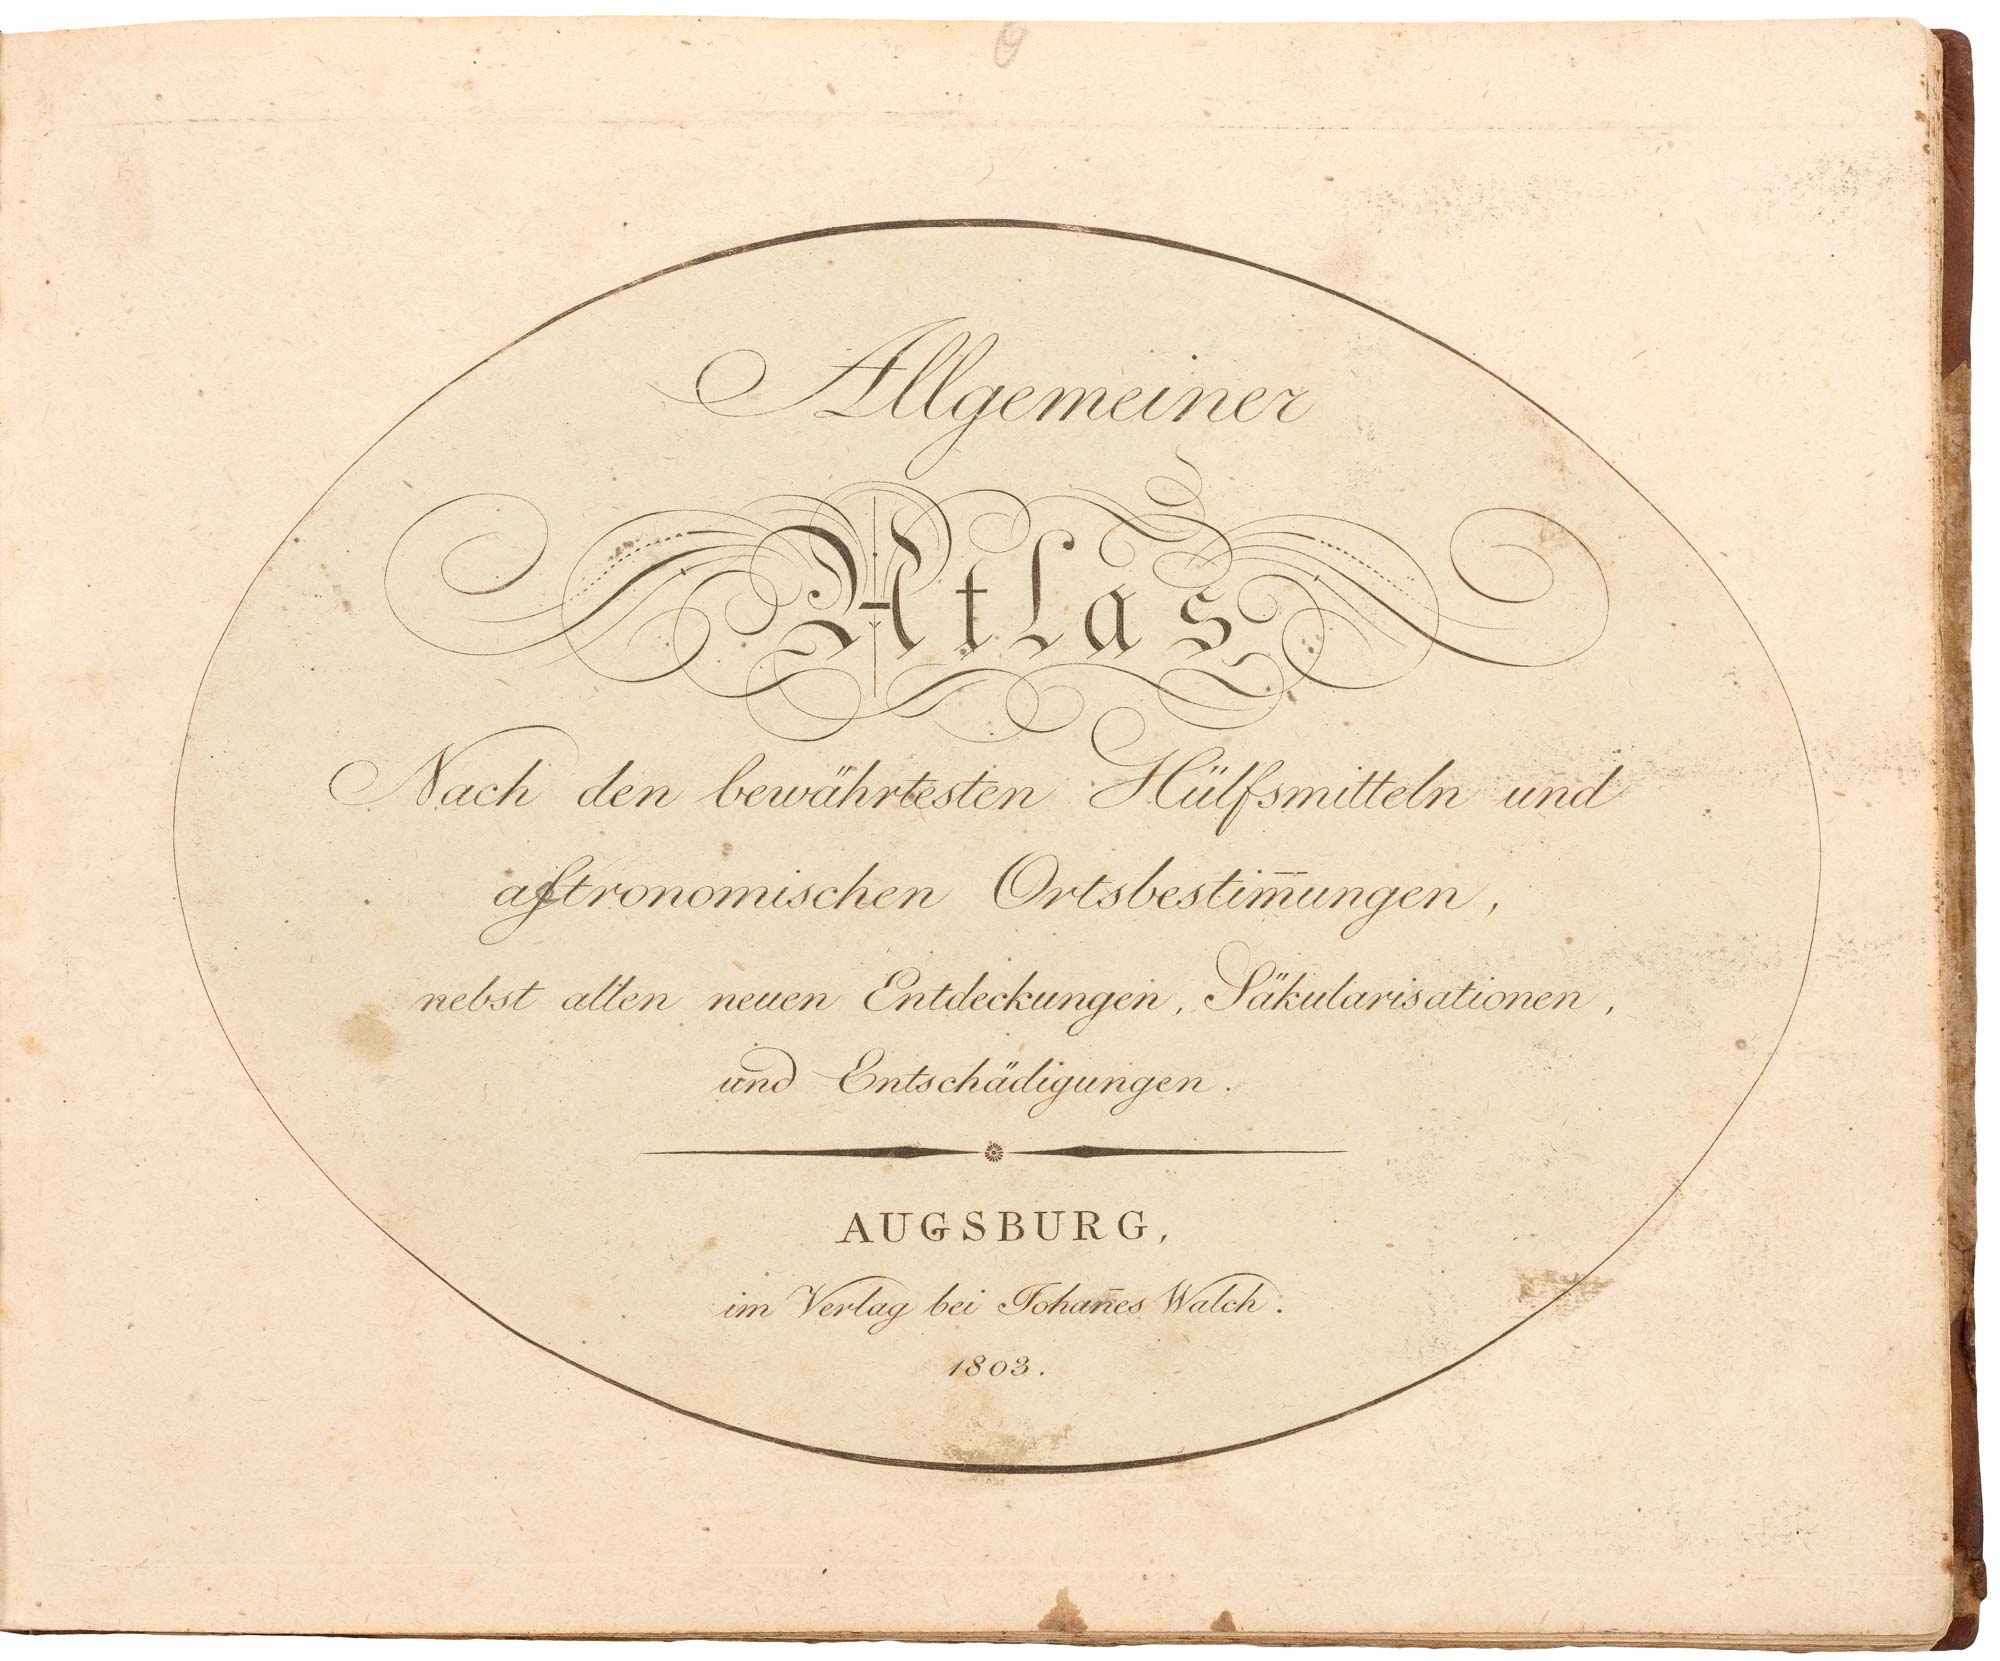 Allgemeiner
Atlas
Nach den bewährtesten Hülfsmitteln und
aſtronomischen Ortsbestim̅ungen,
nebst allen neuen Entdeckungen, Säkularisationen,
und Entschädigungen.
AUGSBURG,
im Verlag bei Johan̅es Walch.
1803.